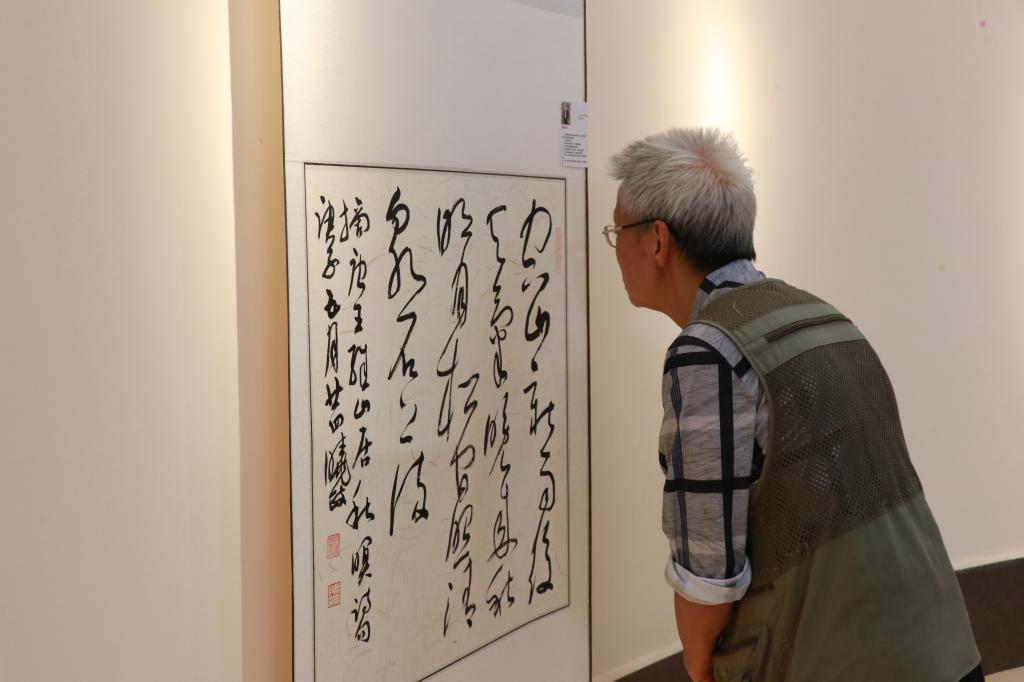 空山新雨後
天氣晚來秋
明月松間照清
泉石上流
摘唐王維山居秋暝詩句
庚子五月廿四曉